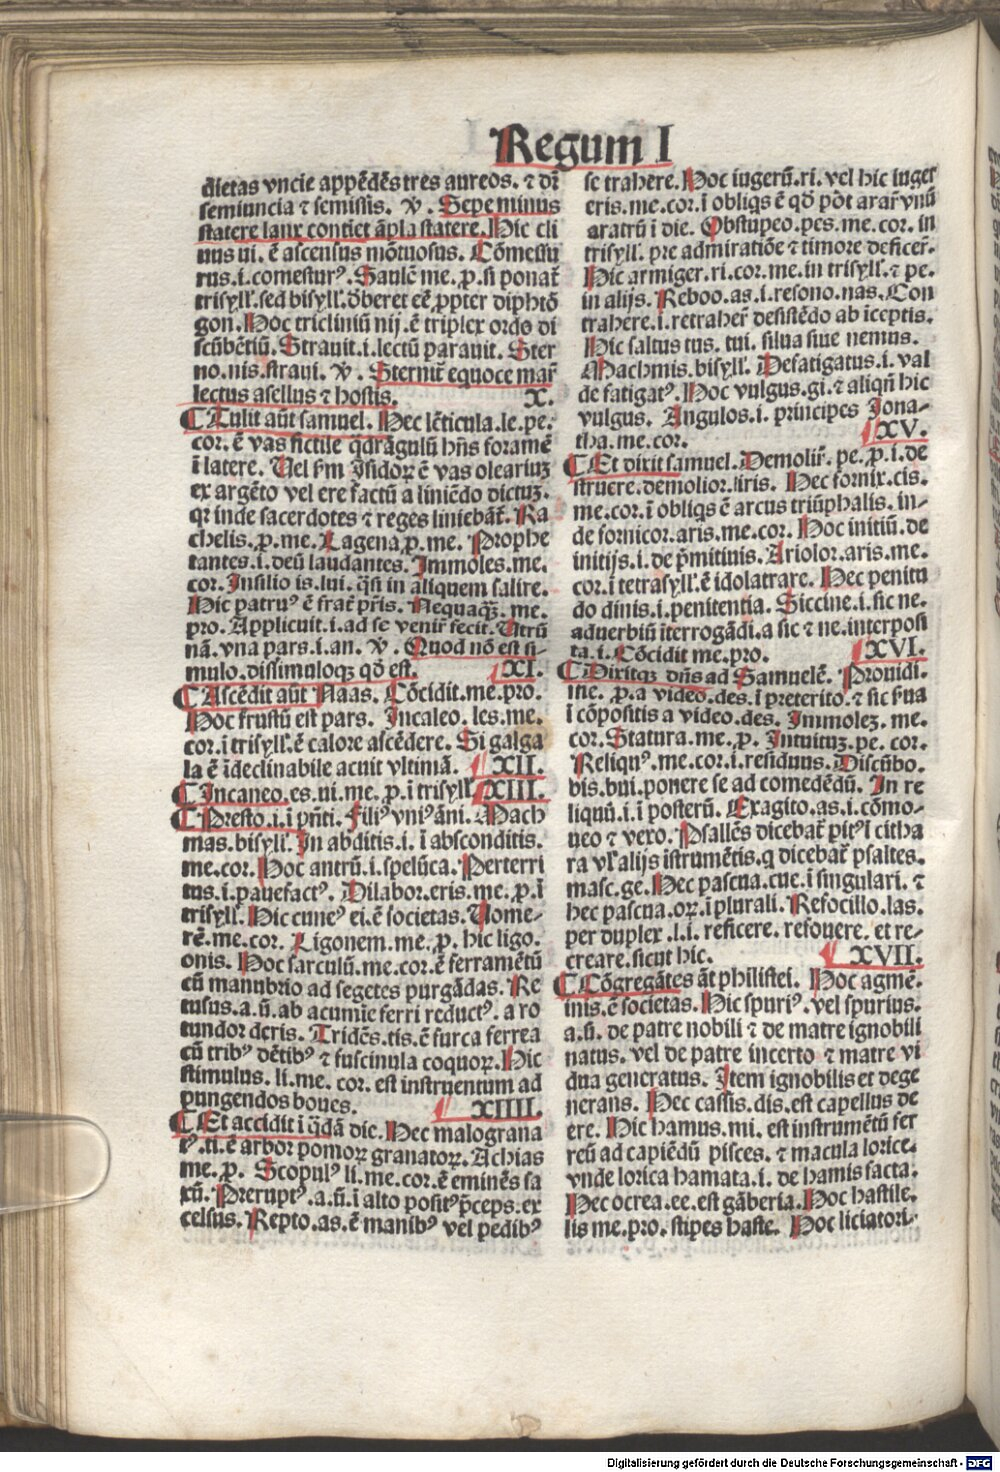 Regum I
dietas vncie appēdēs tres aureos. ⁊ dr̄
semiuncia ⁊ semissis. ℣. Sepe minus
statere lanx contiet āpla statere. Hic cli
uus ui. ē ascensus mōtuosus. Cōmessu
rus. i. comesturꝰ. Saulē me. p. si ponat̄
trisyll̄. sed bisyll̄. ōberet eē ꝓpter diphtō
gon. Hoc tricliniū nij. ē triplex ordo di
scūbētiū. Strauit. i. lectū parauit. Ster
no. nis. straui. ℣. Sternit̄ equoce mar̄
lectus asellus ⁊ hostis. X.
Tulit aūt samuel. Hec lēticula. le. pe.
cor. ē vas fictile q̄dragulū hn̄s foramē
ī latere. Uel s̄m Isidoꝝ ē vas oleariuꝫ
ex argēto vel ere factū a liniēdo dictuꝫ.
qꝛ inde sacerdotes ⁊ reges liniebāt̄. Ra
chelis. p. me. Lagena p. me. Prophe
tantes. i. deū laudantes. Immoles. me.
cor. Insilio is. lui. q̄si in aliquem salire.
Hic patruꝰ ē frat̄ pr̄is. Nequaqꝫ. me.
pro. Applicuit. i. ad se venir̄ fecit. Utrū
nā. vna pars. i. an. ℣. Quod nō est si-
mulo. dissimuloqꝫ qd̄ est. XI.
Ascēdit aūt Naas. Cōcidit. me. pro.
Hoc frustū est pars. Incaleo. les. me.
cor. ī trisyll̄. ē calore ascēdere. Si galga
la ē īdeclinabile acuit vltimā. XII.
Incaneo. es. ui. me. p. ī trisyll̄. XIII.
Presto. i. ī pn̄ti. Filiꝰ vniꝰ āni. Mach
mas. bisyll̄. In abditis. i. ī absconditis.
me. cor. Hoc antrū. i. spelūca. Perterri
tus. i. pauefactꝰ. Dilabor. eris. me. p. ī
trisyll̄. Hic cuneꝰ ei. ē societas. Uome-
rē. me. cor. Ligonem. me. p. hic ligo.
onis. Hoc sarculū. me. cor. ē ferramētū
cū manubrio ad segetes purgādas. Re
tusus. a. ū. ab acumīe ferri reductꝰ. a ro
tundor deris. Tridēs. tis. ē furca ferrea
cū tribꝰ dētibꝰ ⁊ fuscinula coquoꝝ. Hic
stimulus. li. me. cor. est instruentum ad
pungendos boues. XIIII.
Et accidit ī q̄dā die. Hec malograna
tꝰ. ti. ē arbor pomoꝝ granatoꝝ. Achias
me. p. Scopulꝰ li. me. cor. ē eminēs sa
xū. Preruptꝰ. a. ū. i alto positꝰ p̄ceps. ex
celsus. Repto. as. ē manibꝰ vel pedibꝰ
se trahere. Hoc iugerū. ri. vel hic iuger
eris. me. cor. ī obliqs ē qd̄ pōt arar̄ vnū
aratrū ī die. Obstupeo. pes. me. cor. in
trisyll̄. pre admiratiōe ⁊ timore deficer̄.
Hic armiger. ri. cor. me. in trisyll̄. ⁊ pe.
in alijs. Reboo. as. i. resono. nas. Con
trahere. i. retraher̄ desistēdo ab īceptis.
Hic saltus tus. tui. silua siue nemus.
Machmis. bisyll̄. Defatigatus. i. val
de fatigatꝰ. Hoc vulgus. gi. ⁊ aliqn̄ hic
vulgus. Angulos. i. principes Jona-
tha. me. cor. XV.
Et dixit samuel. Demolir̄. pe. p. i. de
struere. demolior. liris. Hec fornix. cis.
me. cor. ī obliqs ē arcus triūphalis. in-
de fornicor. aris. me. cor. Hoc initiū. de
initijs. i. de p̄mitiuis. Ariolor. aris. me.
cor. ī tetrasyll̄. ē idolatrare. Hec penitu
do dinis. i. penitentia. Siccine. i. sic ne.
aduerbiū īterrogādi. a sic ⁊ ne. interposi
ta. i. Cōcidit me. pro. XVI.
Dixitqꝫ dn̄s ad Samuelē. Prouidi.
me. p. a video. des. ī preterito. ⁊ sic ī sua
ī cōpositis a video. des. Immoleꝫ. me.
cor. Statura. me. p. Intuituꝫ. pe. cor.
Reliquꝰ. me. cor. i. residuus. Discūbo.
bis. bui. ponere se ad comedēdū. In re
liquū. i. ī posterū. Exagito. as. i. cōmo-
ueo ⁊ vexo. Psallēs dicebat̄ ī citha
ra vl̄ alijs īstrumētis. q dicebat̄ psaltes.
masc. ge. Hec pascua. cue. ī singulari. ⁊
hec pascua. oꝝ. ī plurali. Refocillo. las.
per duplex. l. i. reficere. refouere. et re-
creare. sicut hic. XVII.
Cōgregātes āt philistei. Hoc agmē.
inis. ē societas. Hic spuriꝰ. vel spurius.
a. ū. de patre nobili ⁊ de matre ignobili
natus. vel de patre incerto ⁊ matre vi
dua generatus. Item ignobilis et dege
nerans. Hec cassis. dis. est capellus de
ere. Hic hamus. mi. est instrumētū fer
reū ad capiēdū pisces. ⁊ macula lorice.
vnde lorica hamata. i. de hamis facta.
Hec ocrea. ee. est gāberia. Hoc hastile.
lis me. pro. stipes haste. Hoc liciatori.
Digitalisierung gefördert durch die Deutsche Forschungsgemeinschaft - DFG